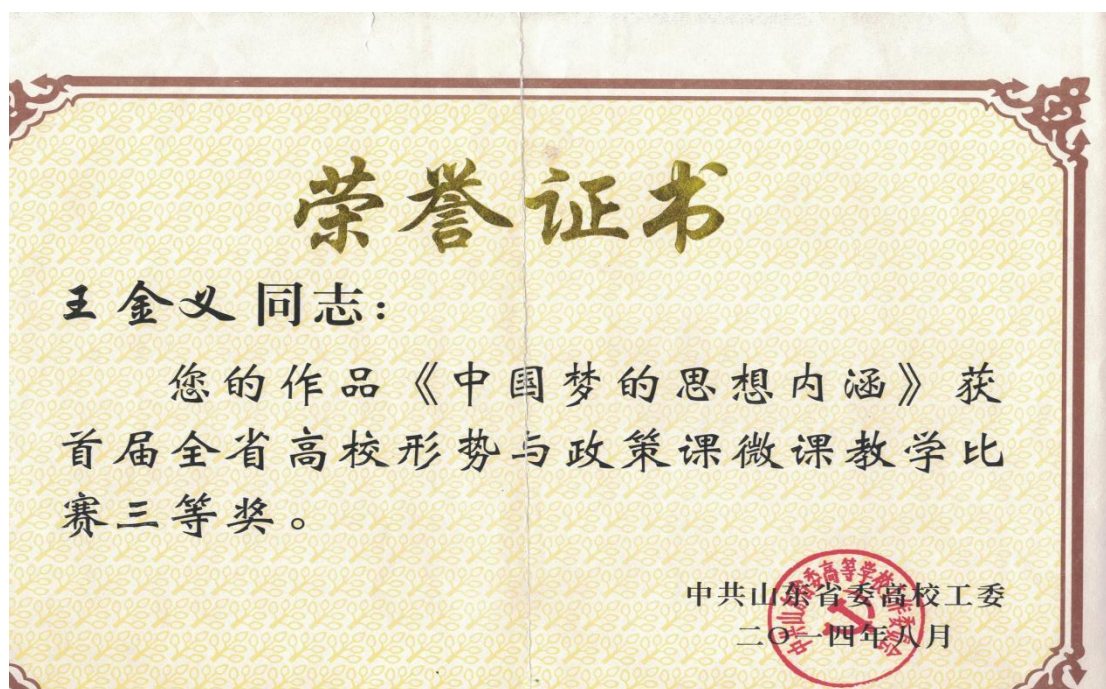 荣誉证书
王金义同志：
您的作品《中国梦的思想内涵》获
首届全省高校形势与政策课微课教学比
赛三等奖。
中共山东省委高校工委
二〇一四年八月
中共山东省委高等学校工作委员会